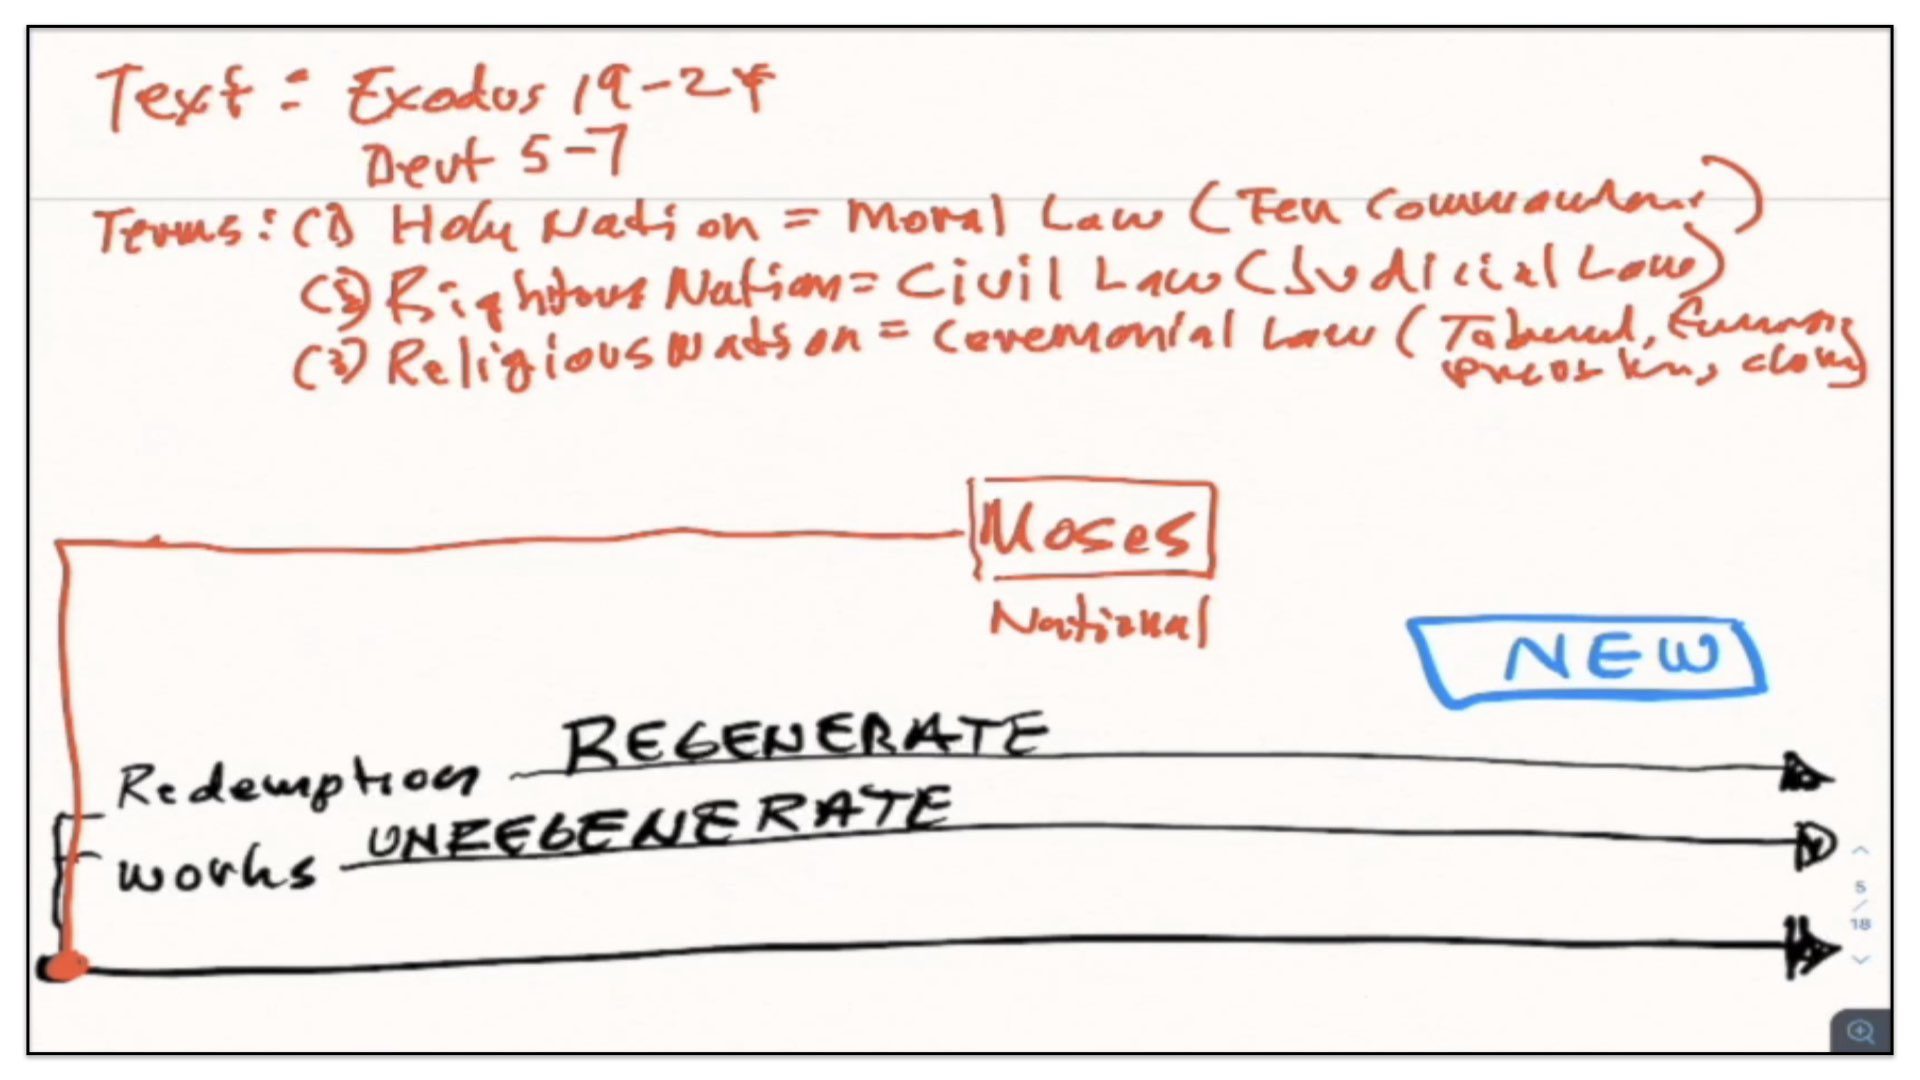 Text = Exodus 19-24
Deut 5-7
Terms: (1) Holy Nation = Moral Law (Ten
(2) Rightous Nation = Civil Law (Judicial Law)
(3) Religious Nation = Ceremonial Law (
Moses
National
NEW
Redemption REGENERATE
works UNREGENERATE
5
/
18